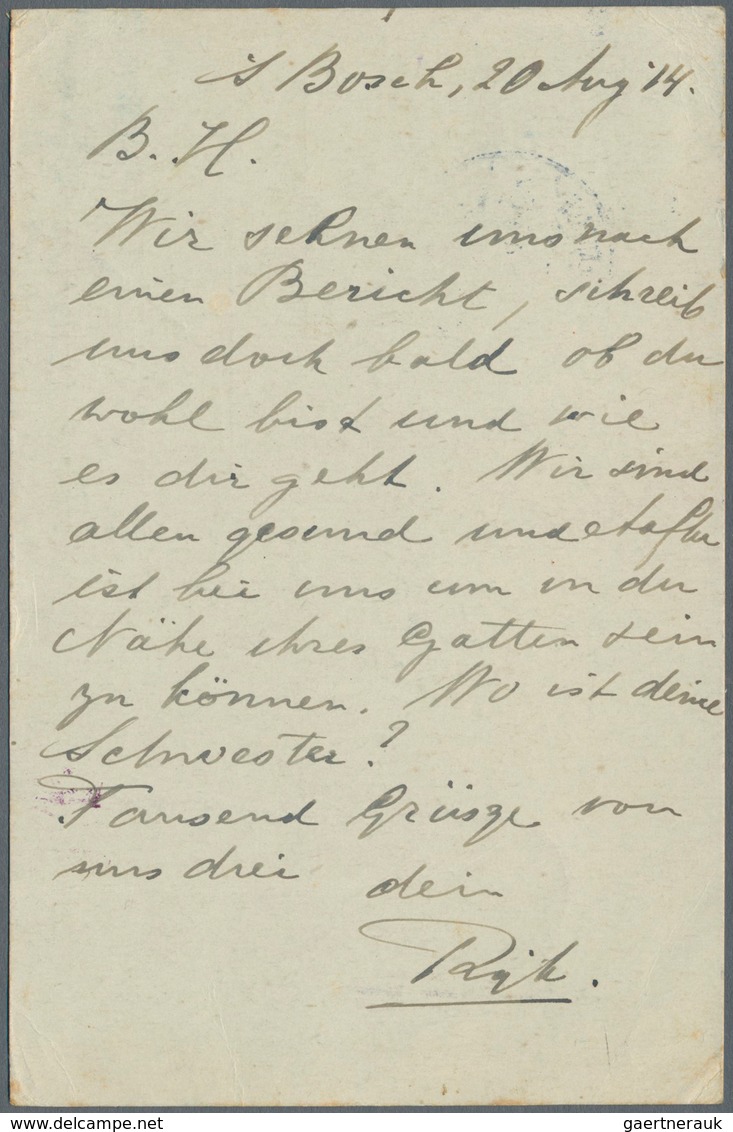 's Bosch, 20 Aug '14.
B. H.
Wir sehnen uns nach
einen Bericht, schreib
uns doch bald ob du
wohl bist und wie
es dir geht. Wir sind
allen gesund und
ist bei uns um in der
Nähe ihres Gatten sein
zu können. Wo ist deine
Schwester?
Tausend Grüsge von
uns drei
dein
Rijk.
gaertnerauk